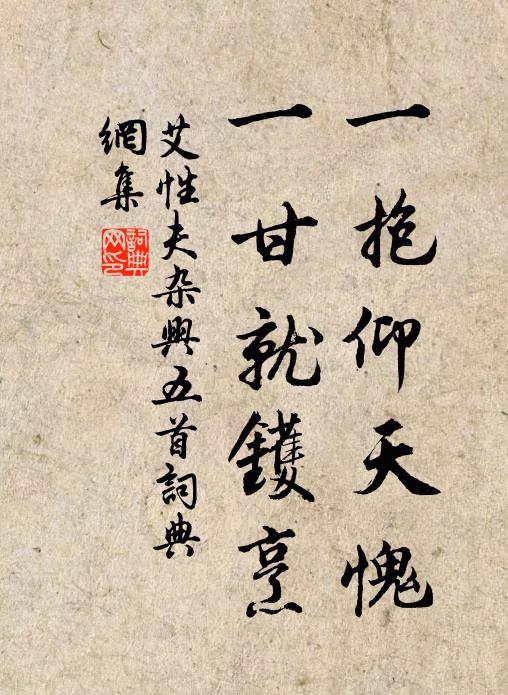 一抱仰天愧
一甘就鑊烹
艾性夫杂興五首詞典
網集
詞典
网印